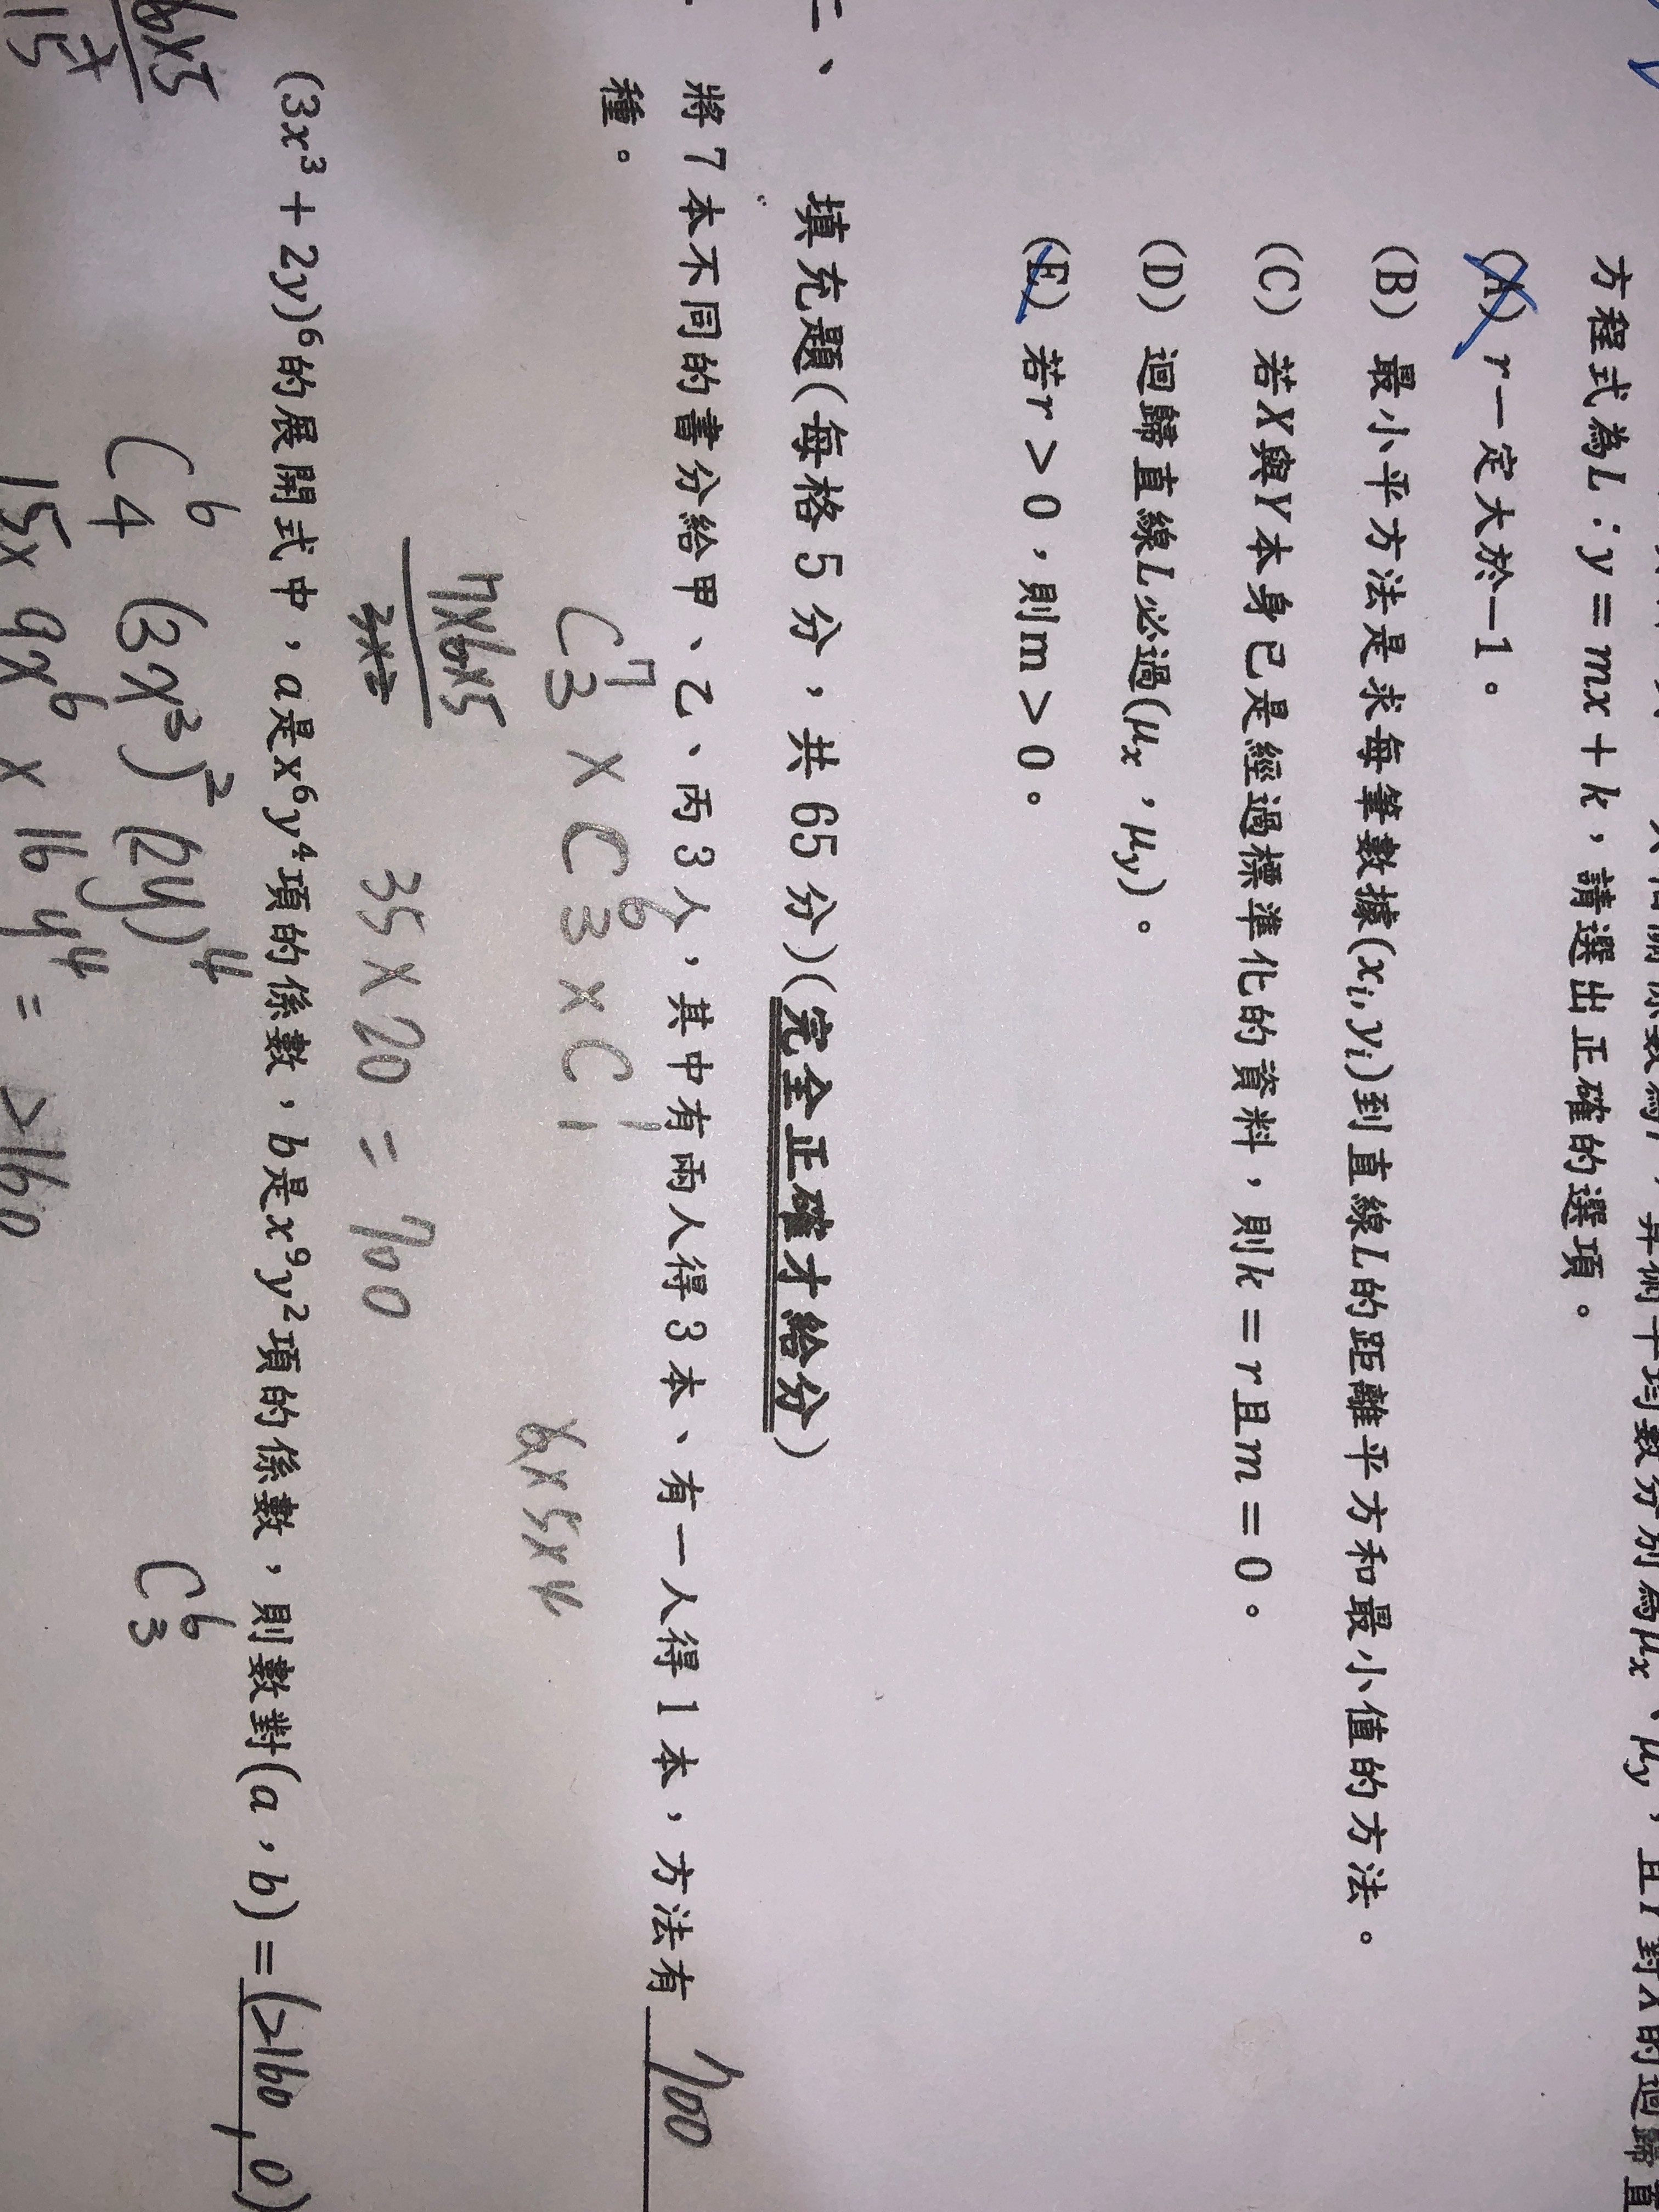 方程式為L：y = mx + k，請選出正確的選項。
(A) r一定大於−1。
(B) 最小平方法是求每筆數據(xᵢ, yᵢ)到直線L的距離平方和最小值的方法。
(C) 若X與Y本身已是經過標準化的資料，則k = r且m = 0。
(D) 迴歸直線L必過(μₓ，μᵧ)。
(E) 若r > 0，則m > 0。
二、 填充題(每格 5 分，共 65 分)(完全正確才給分)
將 7 本不同的書分給甲、乙、丙 3 人，其中有兩人得 3 本、有一人得 1 本，方法有 700
種。
C⁷₃ × C⁶₃ × C¹₁
6×5×4
7×6×5
3×2
35 × 20 = 700
(3x³ + 2y)⁶的展開式中，a是x⁶y⁴項的係數，b是x⁹y²項的係數，則數對(a，b) = (2160, 0)
C⁶₄ (3x³)² (2y)⁴
C⁶₃
6×5
15
15× 9x⁶ × 16 y⁴ = 2160